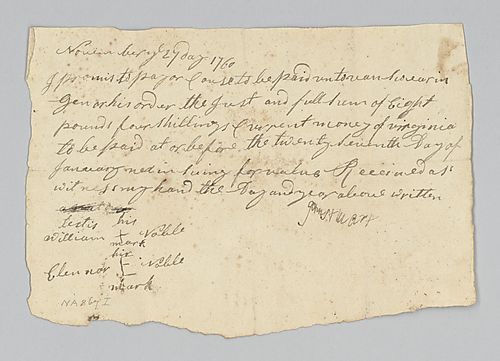 November ye 27 Day 1760
I promis to pay or Cause to be paid unto
or his order the Just and full sum of Eight
pounds four shillings Current money of virginia
to be paid at or before the twenty seventh Day of
January next in suing for value Received as
witness my hand the Day and year above written
testis his
William + Noble
mark
his
Clennor + Noble
mark
NA2671